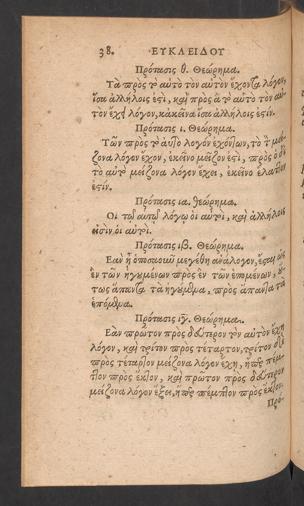 38. ΕΥΚΛΕΙΔΟΥ
Πρότασις θ. Θεώρημα.
Τὰ πρὸς τὸ αὐτὸ τὸν αὐτὸν ἔχοντα λόγον,
ἴσα ἀλλήλοις ἐστί, καὶ πρὸς ἃ τὸ αὐτὸ τὸν αὐ-
τὸν ἔχῃ λόγον, κἀκεῖνα ἴσα ἀλλήλοις ἐστίν.
Πρότασις ι. Θεώρημα.
Τῶν πρὸς τὸ αὐτὸ λόγον ἐχόντων, τὸ τὸν μεί-
ζονα λόγον ἔχον, ἐκεῖνο μεῖζον ἐστι, πρὸς ὃ δὲ
τὸ αὐτὸ μείζονα λόγον ἔχει, ἐκεῖνο ἔλαττον
ἐστιν.
Πρότασις ια. Θεώρημα.
Οι τῷ αὐτῷ λόγῳ οἱ αὐτοὶ, καὶ ἀλλήλοις
εἰσὶν οἱ αὐτοί.
Πρότασις ιβ. Θεώρημα.
Εαν ᾖ ὁποσαοῦν μεγέθη ἀνάλογον, ἔσται ὡς
ἓν τῶν ἡγουμένων πρὸς ἓν τῶν ἑπομένων, οὕ-
τως ἅπαντα τὰ ἡγούμενα, πρὸς ἅπαντα τὰ
ἑπόμενα.
Πρότασις ιγ. Θεώρημα.
Εὰν πρῶτον πρὸς δεύτερον τὸν αὐτὸν ἔχῃ
λόγον, καὶ τρίτον πρὸς τέταρτον, τρίτον δὲ
πρὸς τέταρτον μείζονα λόγον ἔχῃ, ἤπερ πέμ-
πτον πρὸς ἕκτον, καὶ πρῶτον πρὸς δεύτερον
μείζονα λόγον ἕξει, ἤπερ πέμπτον πρὸς ἕκτον.
Πρό-